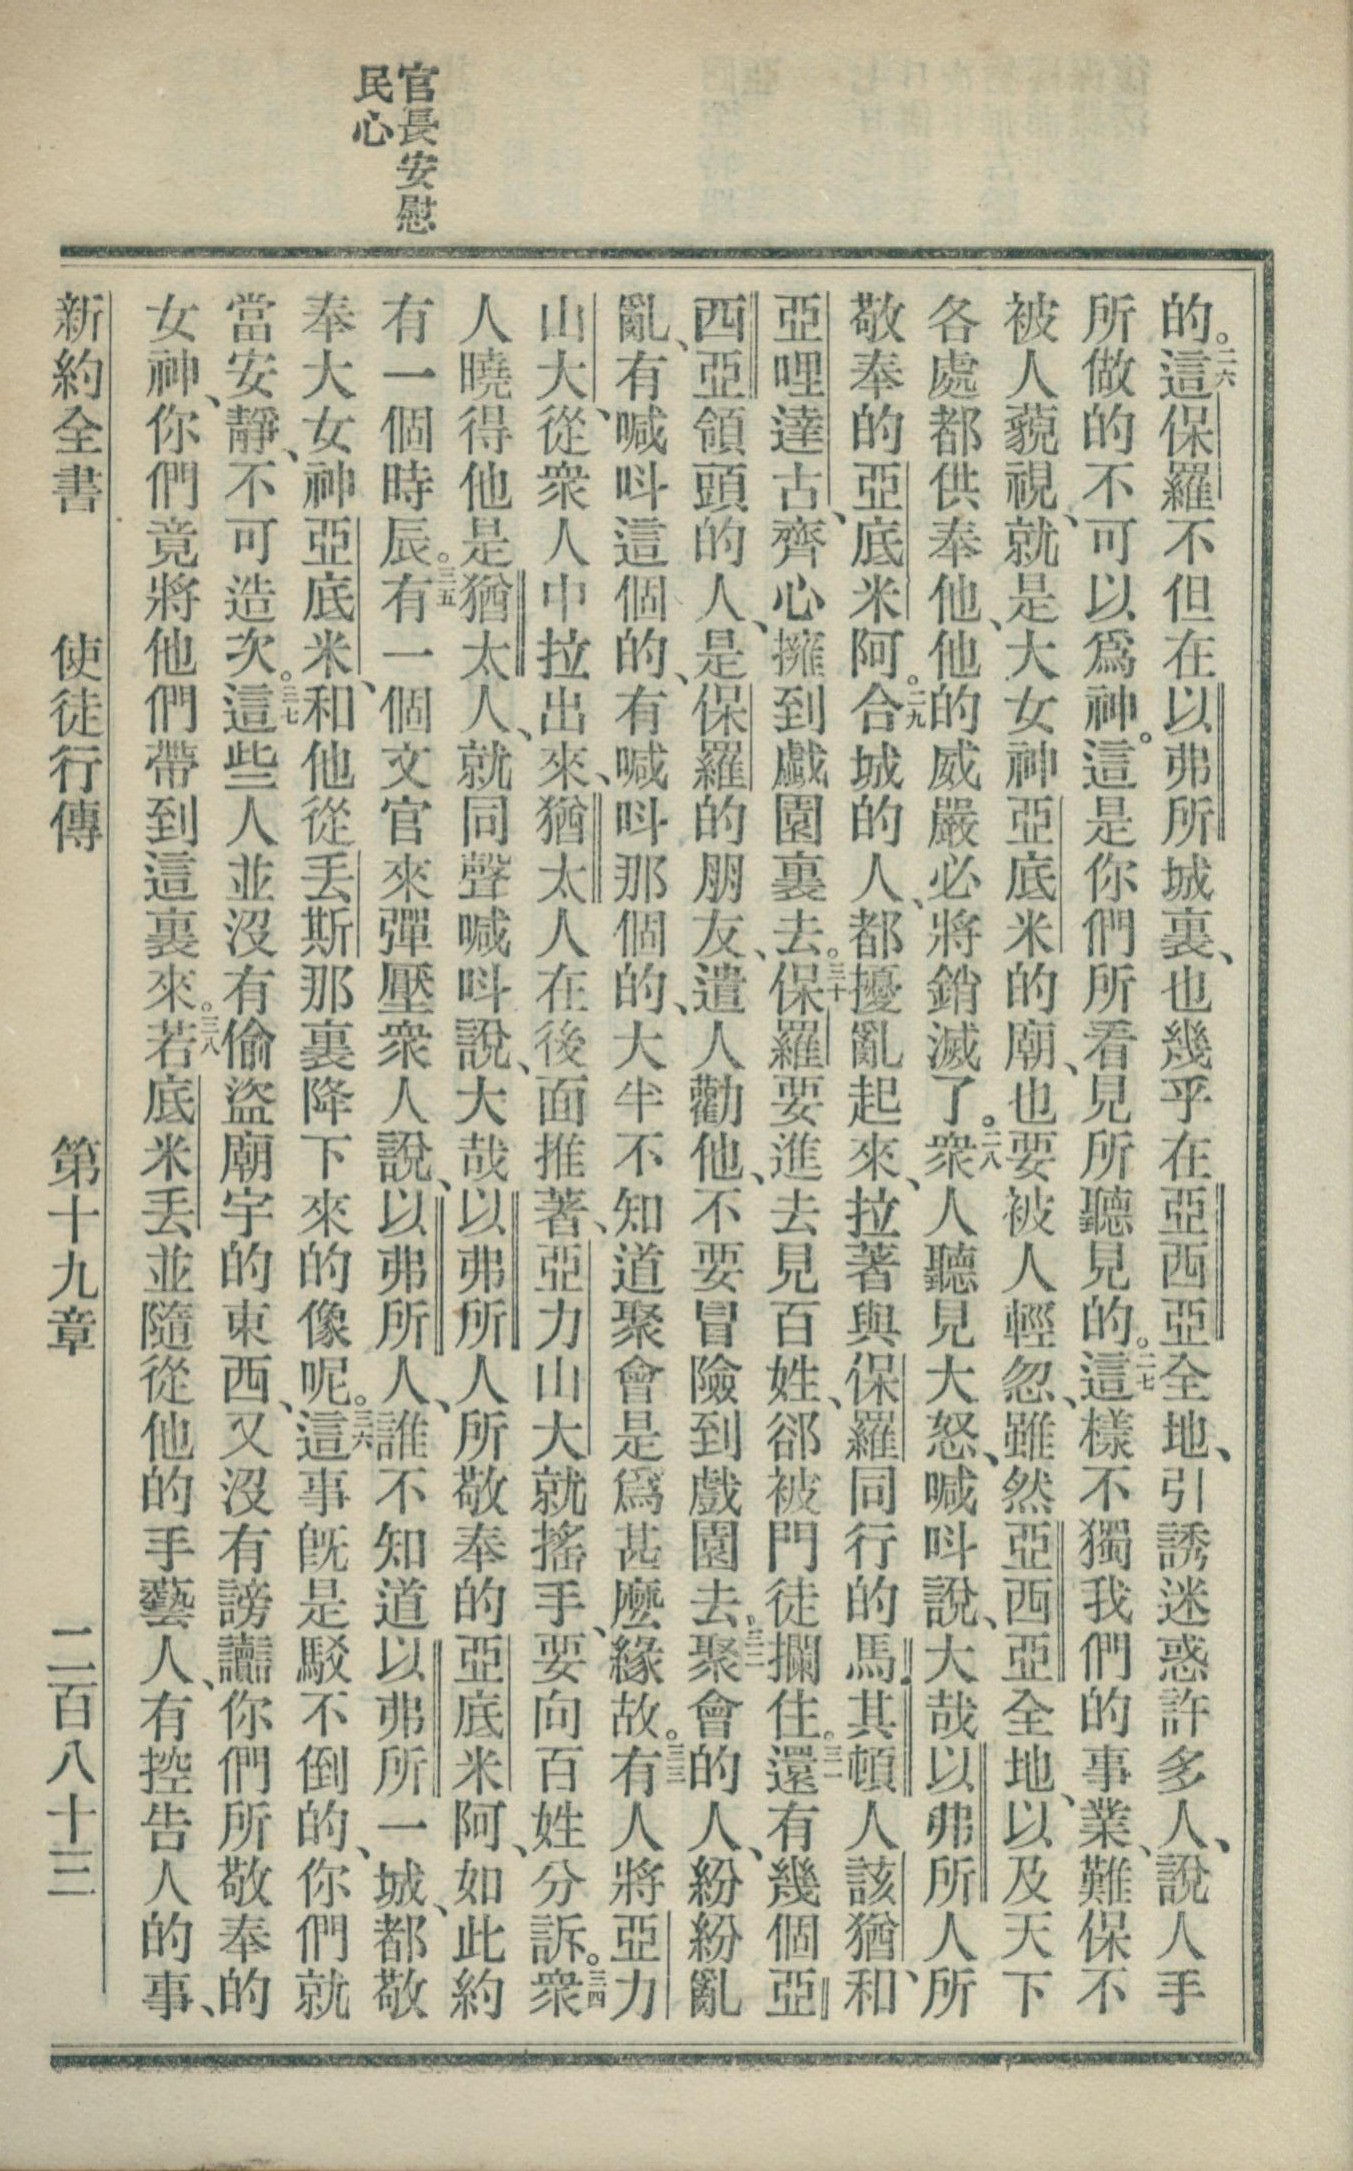 官長安慰
民心
的。二六這保羅不但在以弗所城裏、也幾乎在亞西亞全地、引誘迷惑許多人、說人手
所做的不可以爲神。這是你們所看見所聽見的。二七這樣不獨我們的事業、難保不
被人藐視、就是大女神亞底米的廟、也要被人輕忽、雖然亞西亞全地、以及天下
各處都供奉他、他的威嚴必將銷滅了。二八衆人聽見大怒、喊呌說、大哉以弗所人所
敬奉的亞底米阿。二九合城的人、都擾亂起來、拉著與保羅同行的馬其頓人該猶、和
亞哩達古、齊心擁到戲園裏去。三十保羅要進去見百姓、郤被門徒攔住。三一還有幾個亞
西亞領頭的人、是保羅的朋友、遣人勸他、不要冒險到戲園去。三二聚會的人、紛紛亂
亂、有喊呌這個的、有喊呌那個的、大半不知道聚會是爲甚麽緣故。三三有人將亞力
山大、從衆人中拉出來、猶太人在後面推著、亞力山大就搖手、要向百姓分訴。三四衆
人曉得他是猶太人、就同聲喊呌說、大哉以弗所人所敬奉的亞底米阿、如此約
有一個時辰。三五有一個文官來彈壓衆人說、以弗所人、誰不知道以弗所一城、都敬
奉大女神亞底米、和他從丟斯那裏降下來的像呢。三六這事旣是駁不倒的、你們就
當安靜、不可造次。三七這些人並沒有偷盜廟宇的東西、又沒有謗讟你們所敬奉的
女神、你們竟將他們帶到這裏來。三八若底米丟並隨從他的手藝人、有控告人的事、
新約全書　使徒行傳　第十九章　二百八十三